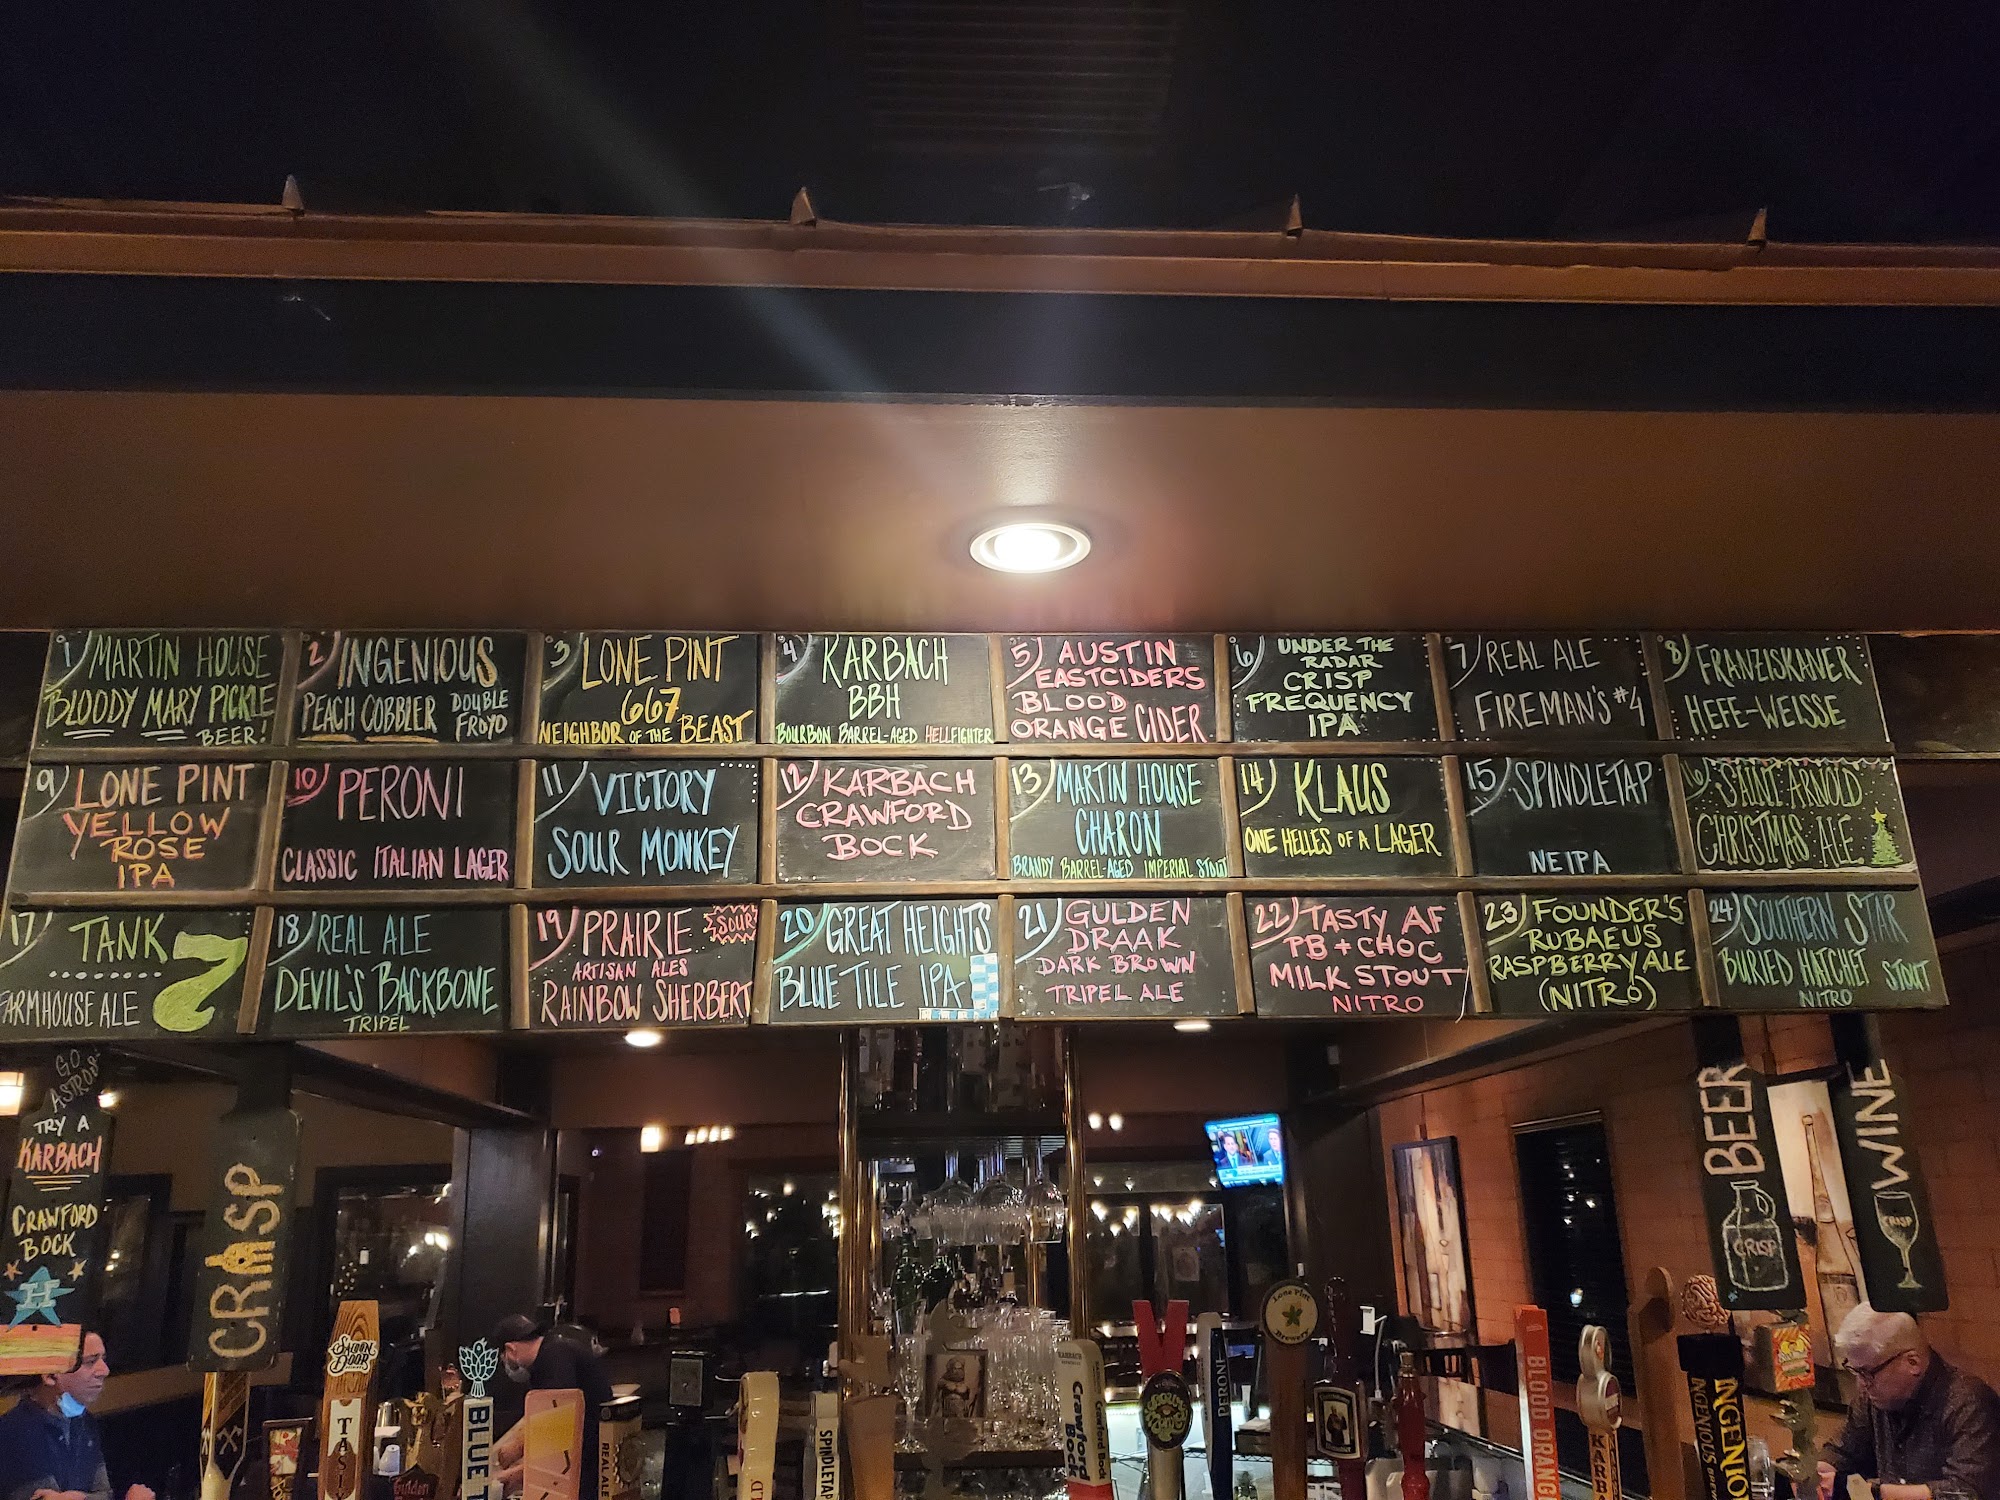 1) MARTIN HOUSE
BLOODY MARY PICKLE
BEER!
2) INGENIOUS
PEACH COBBLER DOUBLE
FROYO
3) LONE PINT
667
NEIGHBOR OF THE BEAST
4) KARBACH
BBH
BOURBON BARREL-AGED HELLFIGHTER
5) AUSTIN
EASTCIDERS
BLOOD
ORANGE CIDER
6) UNDER THE
RADAR
CRISP
FREQUENCY
IPA
7) REAL ALE
FIREMAN'S #4
8) FRANZISKANER
HEFE-WEISSE
9) LONE PINT
YELLOW
ROSE
IPA
10) PERONI
CLASSIC ITALIAN LAGER
11) VICTORY
SOUR MONKEY
12) KARBACH
CRAWFORD
BOCK
13) MARTIN HOUSE
CHARON
BRANDY BARREL-AGED IMPERIAL STOUT
14) KLAUS
ONE HELLES OF A LAGER
15) SPINDLETAP
NEIPA
16) SAINT ARNOLD
CHRISTMAS ALE
17) TANK
7
FARMHOUSE ALE
18) REAL ALE
DEVIL'S BACKBONE
TRIPEL
19) PRAIRIE SOUR
ARTISAN ALES
RAINBOW SHERBERT
20) GREAT HEIGHTS
BLUE TILE IPA
21) GULDEN
DRAAK
DARK BROWN
TRIPEL ALE
22) TASTY AF
PB + CHOC
MILK STOUT
NITRO
23) FOUNDER'S
RUBAEUS
RASPBERRY ALE
(NITRO)
24) SOUTHERN STAR
BURIED HATCHET STOUT
NITRO
GO
TRY A
KARBACH
CRAWFORD
BOCK
H
CRISP
BEER
CRISP
WINE
CRISP
SALOON
DOOR
BLUE
REAL ALE
SPINDLETAP
Crawford
Bock
Crawford Bock
PERONI
Lone Pint
Brewery
BLOOD ORANGE
INGENIOUS